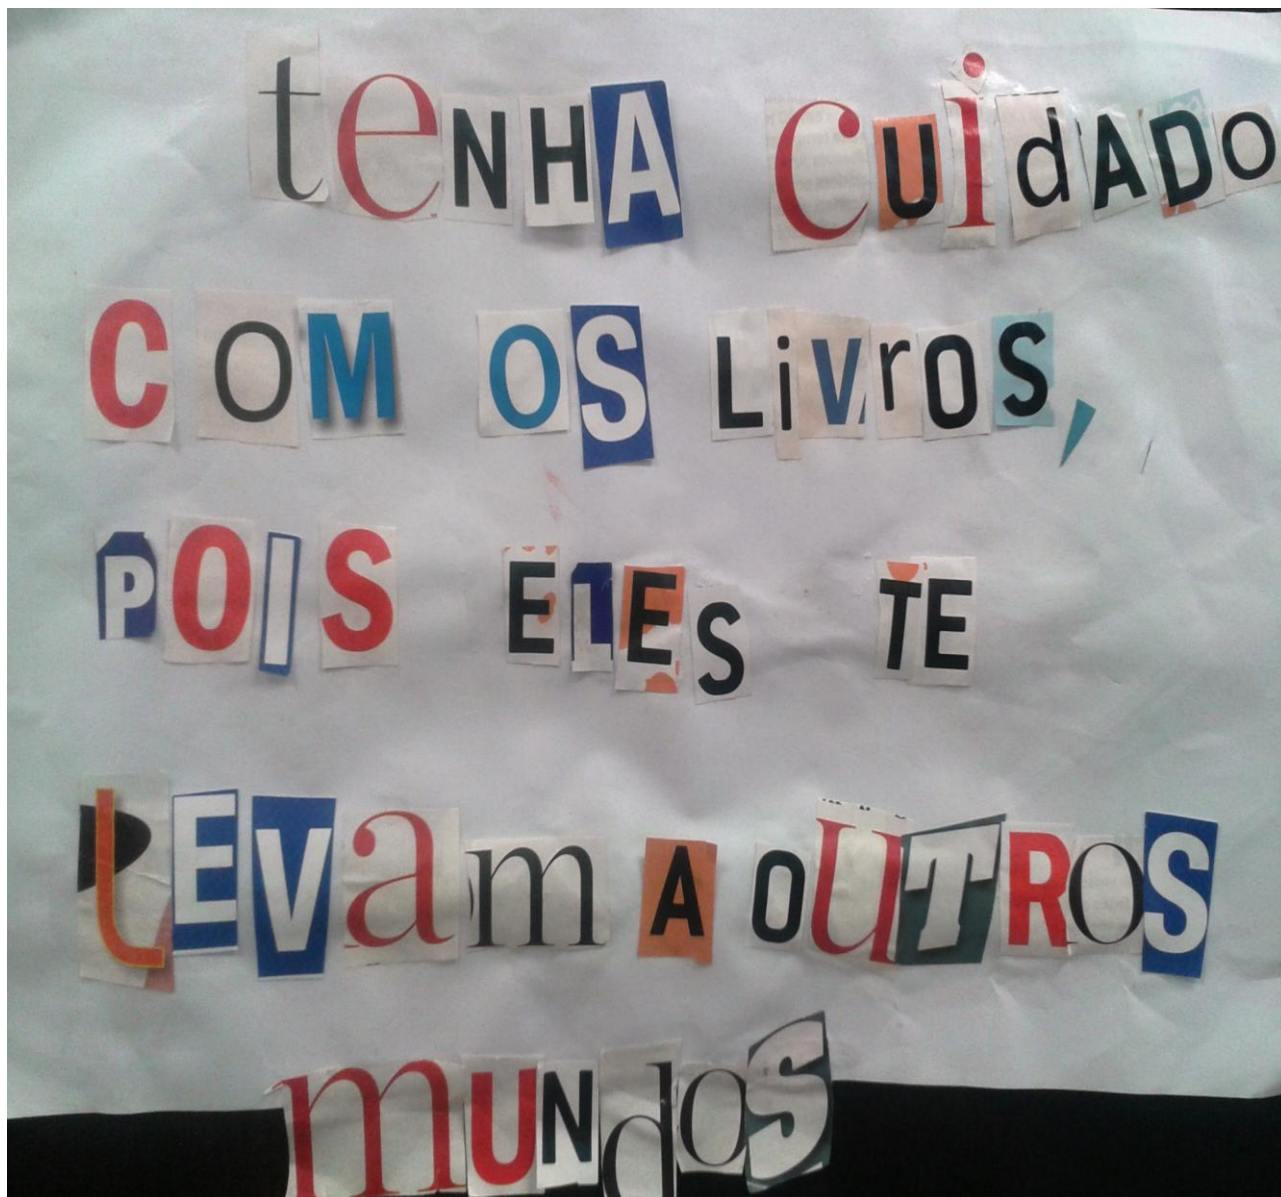 teNHA CuidADO
COM OS LiVrOS,
POIS ELES TE
LEVam A OUTROS
mUNdoS